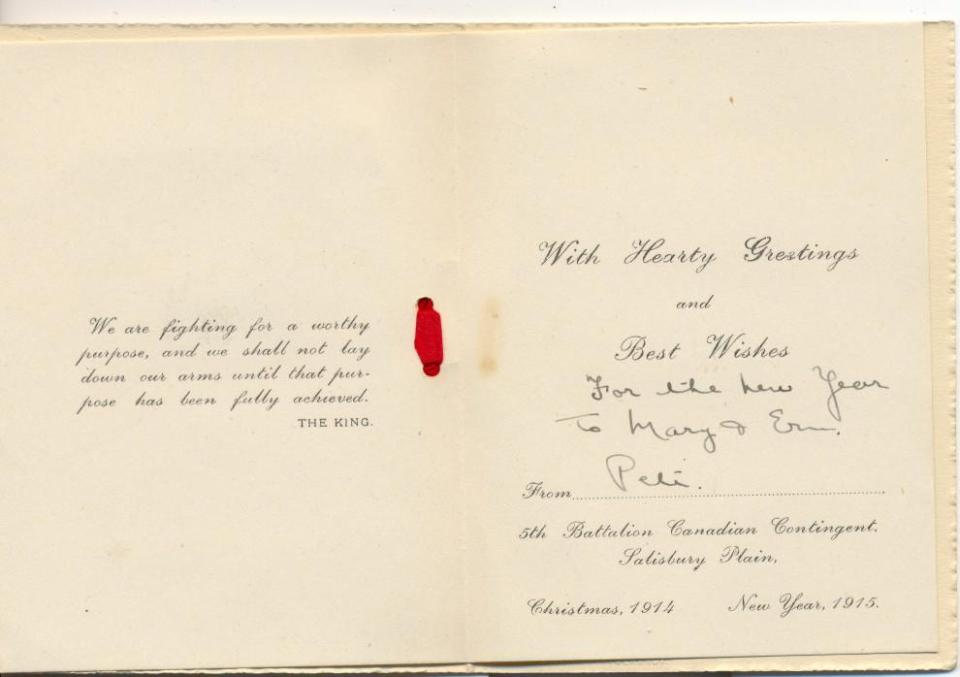 We are fighting for a worthy
purpose, and we shall not lay
down our arms until that pur-
pose has been fully achieved.
THE KING.
With Hearty Greetings
and
Best Wishes
For the new Year
to Mary & Ern.
Pete.
From
5th Battalion Canadian Contingent.
Salisbury Plain,
Christmas, 1914 New Year, 1915.